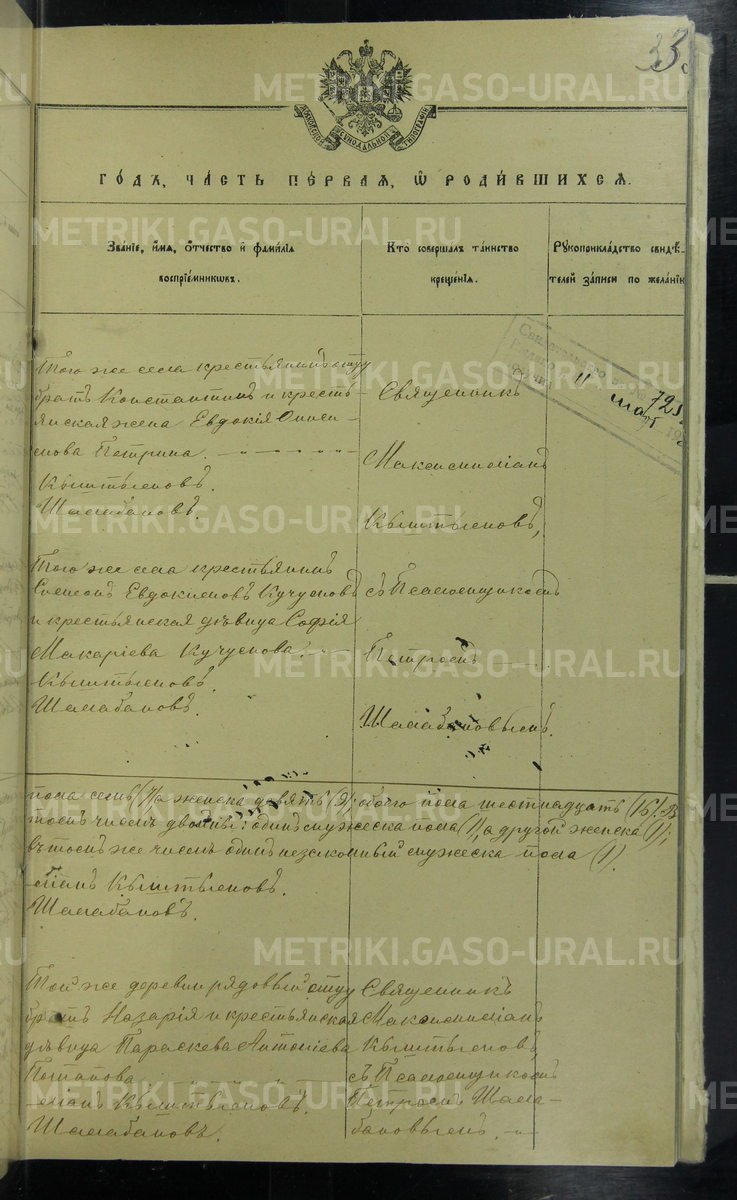 33
МОСКОВСКОЙ СѴНОДАЛЬНОЙ ТИПОГРАФІИ
ГОДЪ, ЧАСТЬ ПЕРВАЯ, Ѡ РОДИВШИХСЯ.
Званіе, имя, отчество и фамилія
воспріемниковъ.
Кто совершалъ таинство
крещенія.
Рукоприкладство свидѣ-
телей записи по желанію
Того же села крестьянинъ
братъ Константинъ и кресть-
янская жена Евдокія Ониси-
мова Петрина.
Кыштымовъ.
Шалабановъ.
Священникъ
Максимиліанъ
Кыштымовъ,
съ Псаломщикомъ
Петромъ
Шалабановымъ.
11 мая 725
Того же села крестьянинъ
Симеонъ Евдокимовъ Кучумовъ
и крестьянская дѣвица Софія
Макаріева Кучумова.
Кыштымовъ.
Шалабановъ.
пола семь (7) а женска девять (9); обоего пола шестнадцать (16). Въ
томъ числѣ двойни: одинъ мужеска пола (1), а другой женска (1);
въ томъ же числѣ одинъ незаконный мужеска пола (1).
миліанъ Кыштымовъ.
Шалабановъ.
Той же деревни рядовый
братъ Назарія и крестьянская
дѣвица Параскева Антоніева
Потапова
миліанъ Кыштымовъ.
Шалабановъ.
Священникъ
Максимиліанъ
Кыштымовъ,
съ Псаломщикомъ
Петромъ Шала-
бановымъ.
METRIKI.GASO-URAL.RU